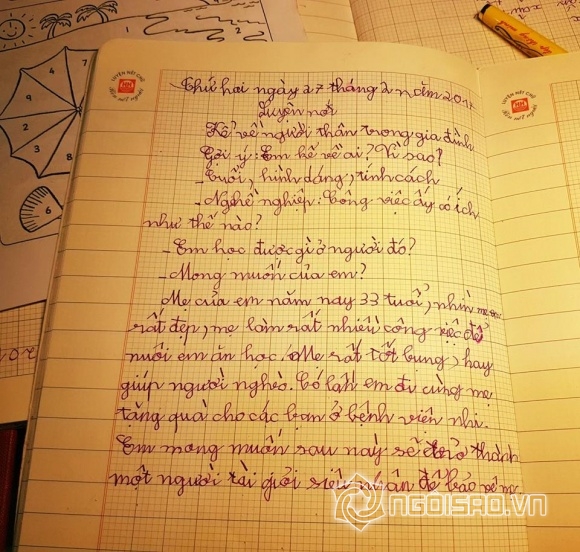 LUYỆN NÉT CHỮ
Rèn nết người
LUYỆN NÉT CHỮ
Rèn nết người
Thứ hai ngày 27 tháng 2 năm 201
Luyện nói
Kể về người thân trong gia đình
Gợi ý: Em kể về ai? Vì sao?
- Tuổi, hình dáng, tính cách
- Nghề nghiệp: Công việc ấy có ích
như thế nào?
- Em học được gì ở người đó?
- Mong muốn của em?
Mẹ của em năm nay 33 tuổi, nhìn mẹ
rất đẹp, mẹ làm rất nhiều công việc để
nuôi em ăn học. Mẹ rất tốt bụng, hay
giúp người nghèo. Có lần em đi cùng mẹ
tặng quà cho các bạn ở bệnh viên nhi.
Em mong muốn sau này sẽ trở thành
một người tài giỏi siêu nhân để bảo vệ mẹ
NGOISAO.VN
4
5
6